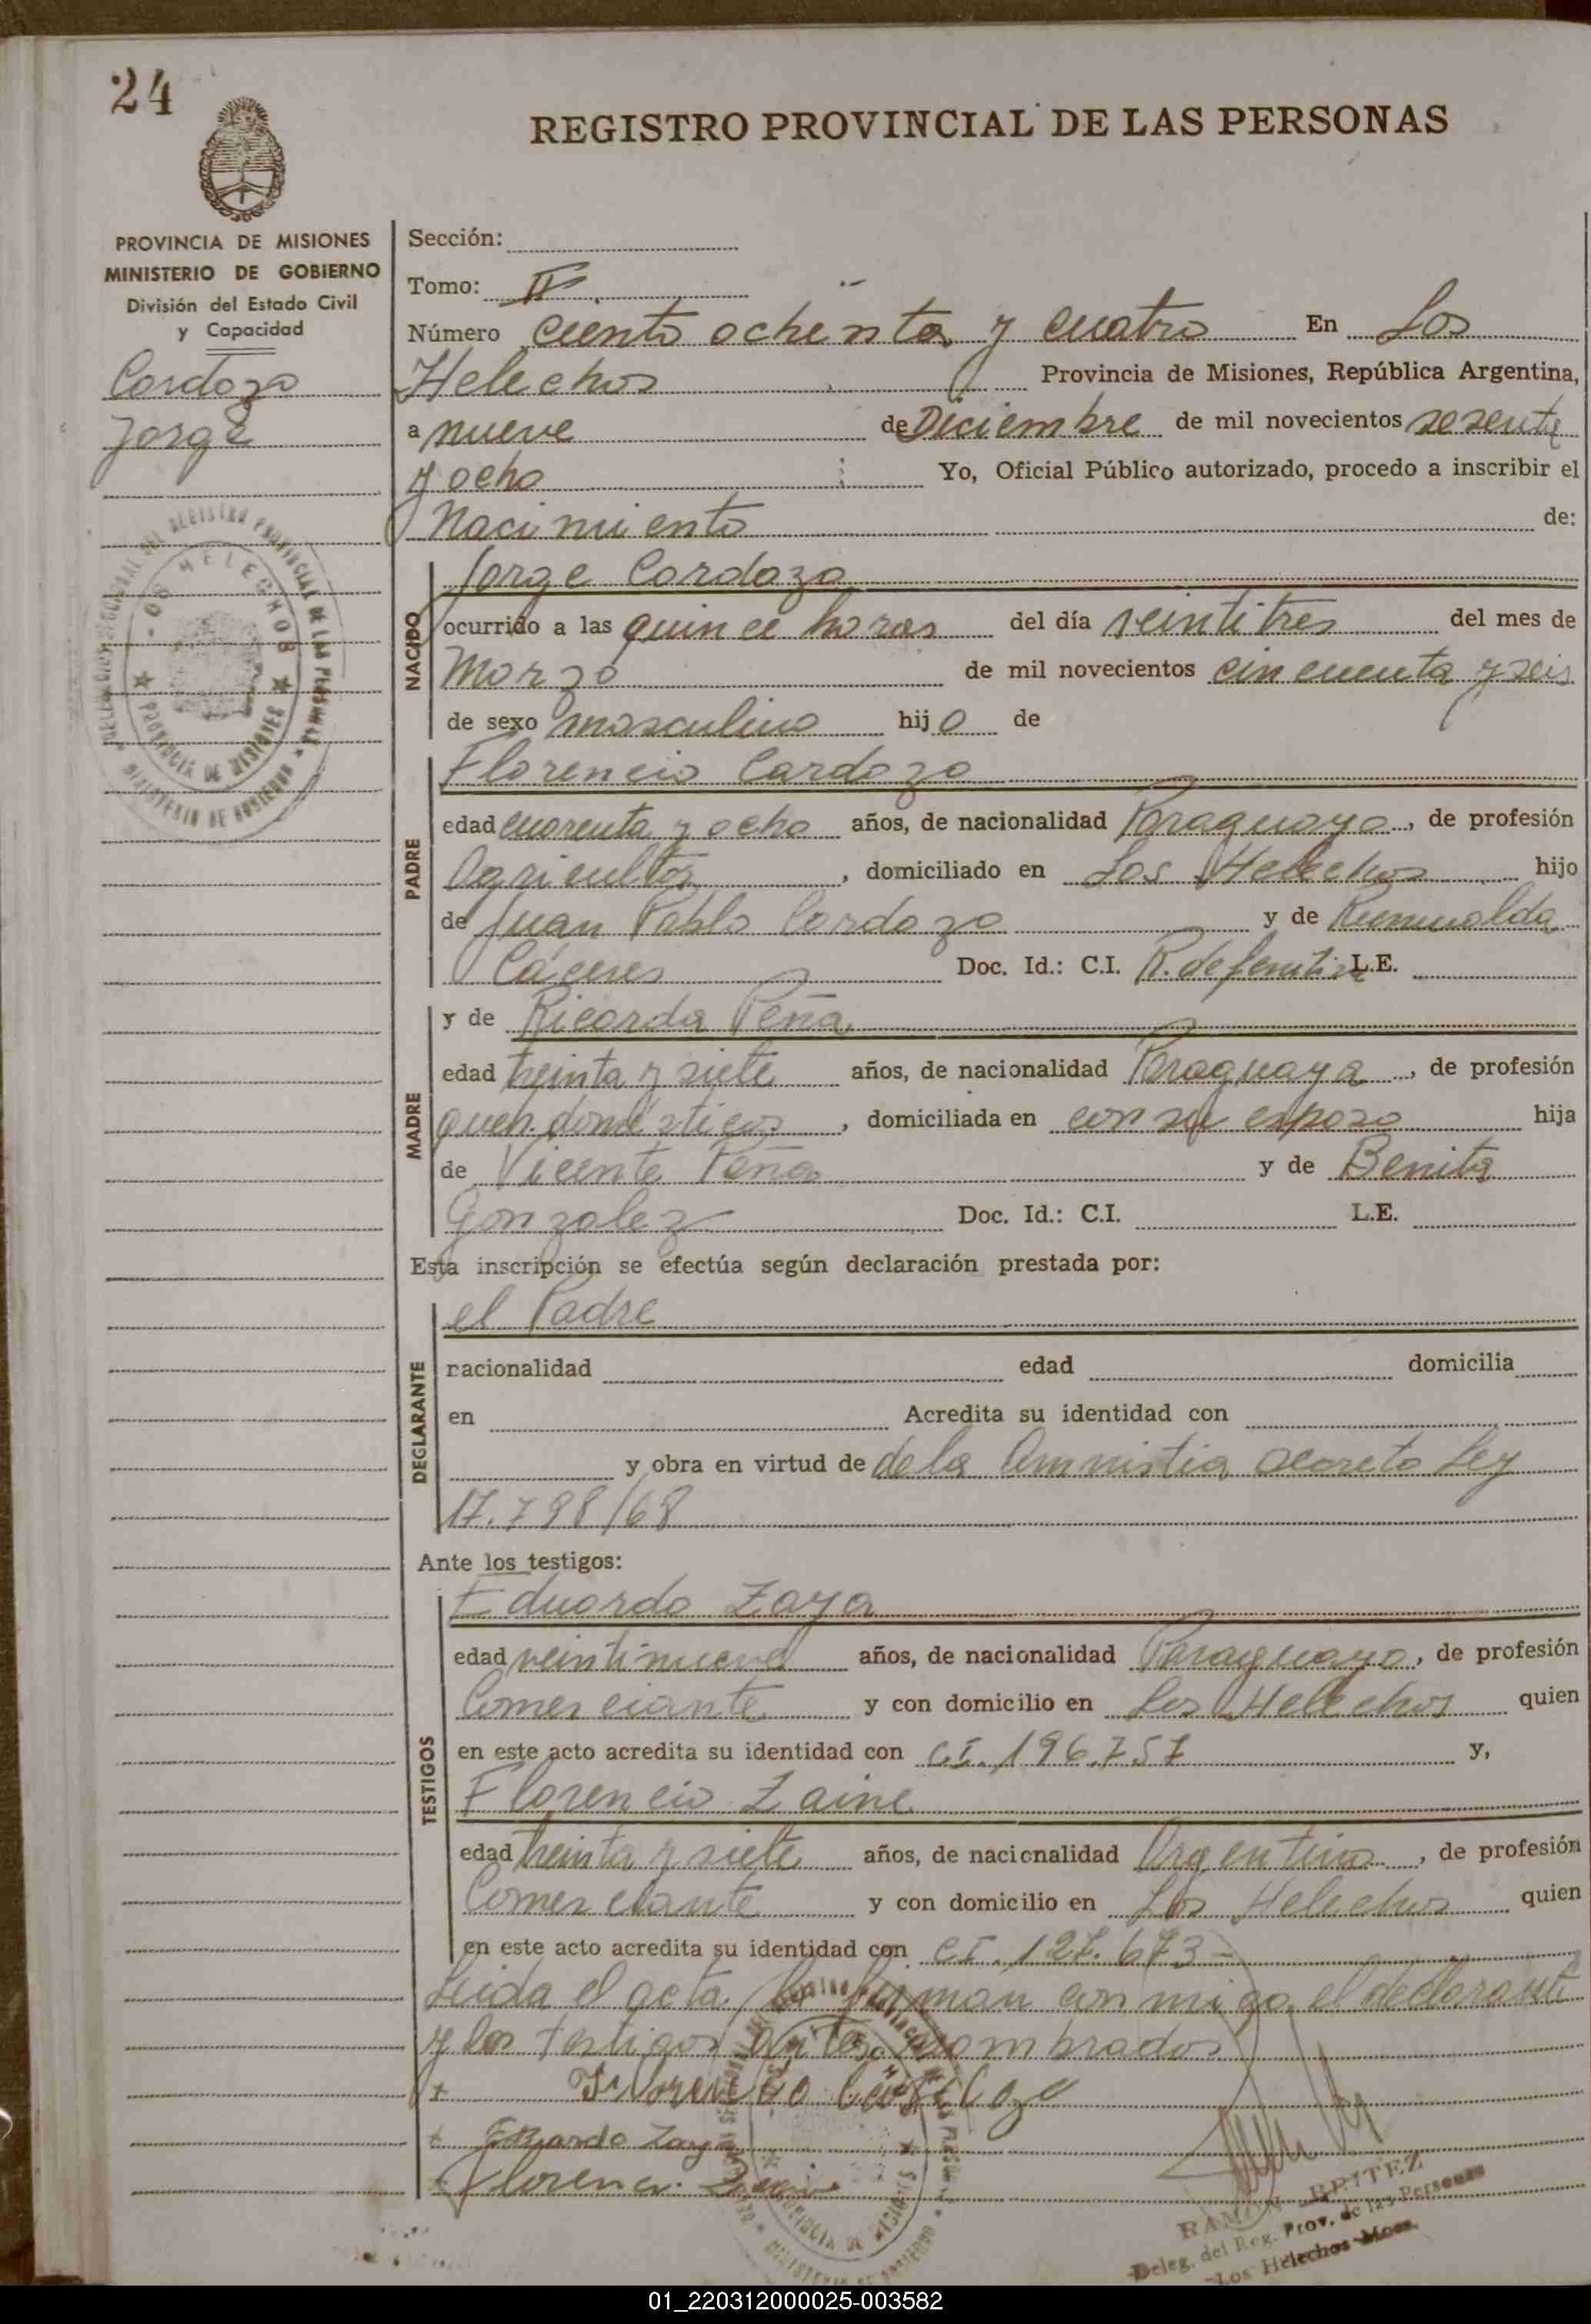 24
REGISTRO PROVINCIAL DE LAS PERSONAS
PROVINCIA DE MISIONES
MINISTERIO DE GOBIERNO
División del Estado Civil
y Capacidad
Cordozo
Jorge
Sección:
Tomo: II
Número ciento ochenta y cuatro En Los
Helechos Provincia de Misiones, República Argentina,
a nueve de Diciembre de mil novecientos sesenta
y ocho Yo, Oficial Público autorizado, procedo a inscribir el
Nacimiento de:
NACIDO
Jorge Cordozo
ocurrido a las quince horas del día veintitres del mes de
Marzo de mil novecientos cincuenta y seis
de sexo masculino hijo de
PADRE
Florencio Cardozo
edad cuarenta y ocho años, de nacionalidad Paraguayo, de profesión
Agricultor, domiciliado en Los Helechos hijo
de Juan Pablo Cordozo y de Rumualda
Cáceres Doc. Id.: C.I. R. definitiva L.E.
MADRE
y de Ricarda Peña
edad treinta y siete años, de nacionalidad Paraguaya, de profesión
queh. domésticos, domiciliada en con su esposo hija
de Vicente Peña y de Benita
Gonzalez Doc. Id.: C.I. L.E.
Esta inscripción se efectúa según declaración prestada por:
DECLARANTE
el Padre
nacionalidad edad domicilia
en Acredita su identidad con
y obra en virtud de de la Amnistia decreto Ley
17.798/68
Ante los testigos:
TESTIGOS
Eduardo Zaya
edad veintinueve años, de nacionalidad Paraguayo, de profesión
Comerciante y con domicilio en Los Helechos quien
en este acto acredita su identidad con C.I. 196.757 y,
Florencio Zaine
edad treinta y siete años, de nacionalidad Argentino, de profesión
Comerciante y con domicilio en Los Helechos quien
en este acto acredita su identidad con C.I. 127.673-
Leida el acta, la firman conmigo, el declarante
y los testigos antes nombrados
+ Florencio Cordozo
+ Eduardo Zaya
+ Florenci
RAMON BRITEZ
Deleg. del Reg. Prov. de las Personas
Los Helechos Mnes.
LOS HELECHOS
PROVINCIA DE MISIONES
MINISTERIO DE GOBIERNO
01_220312000025-003582